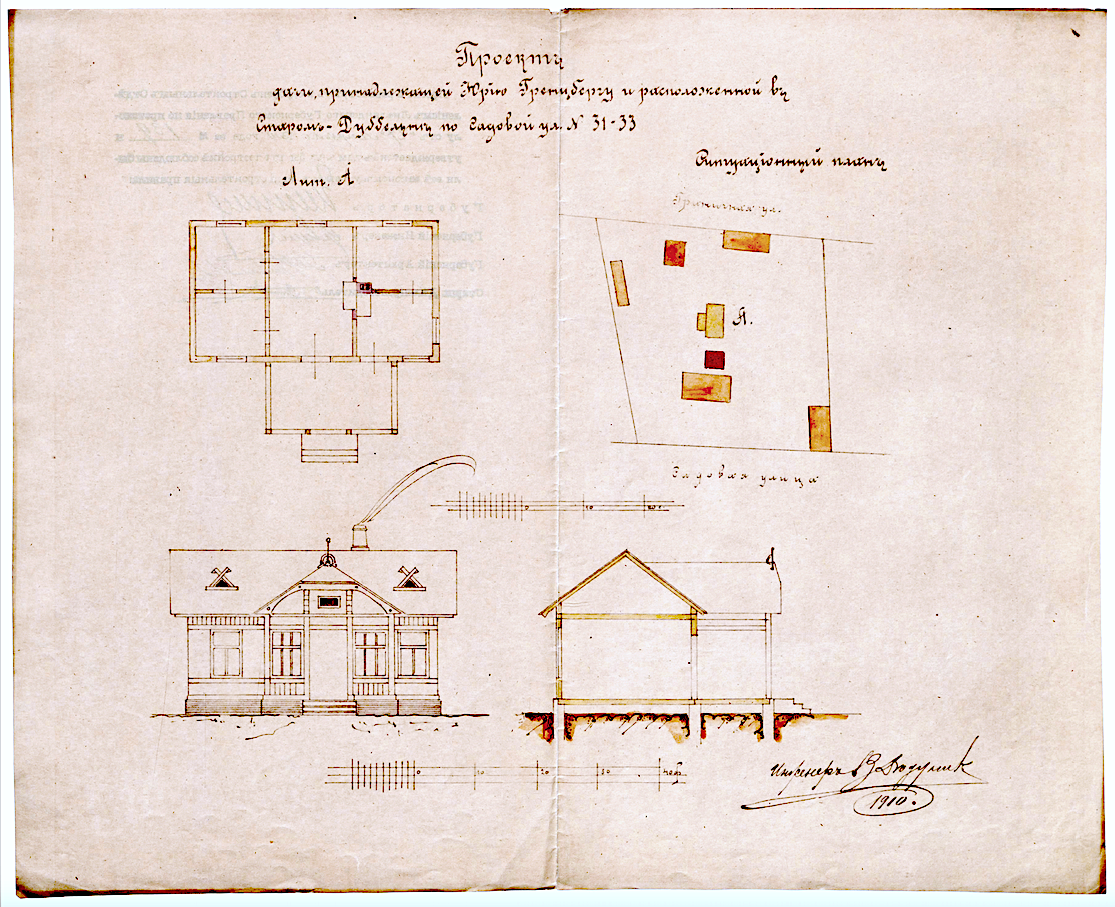 Проектъ
дачи, принадлежащей Юрію Гренцбергу и расположенной въ
Старомъ-Дуббельнѣ по Садовой ул. N 31-33
Лит. А
Ситуаціонный планъ
Граничная ул.
А.
Садовая улица
0 10 20 f.
0 10 20 30 40 ф.
Инженеръ В
1910.